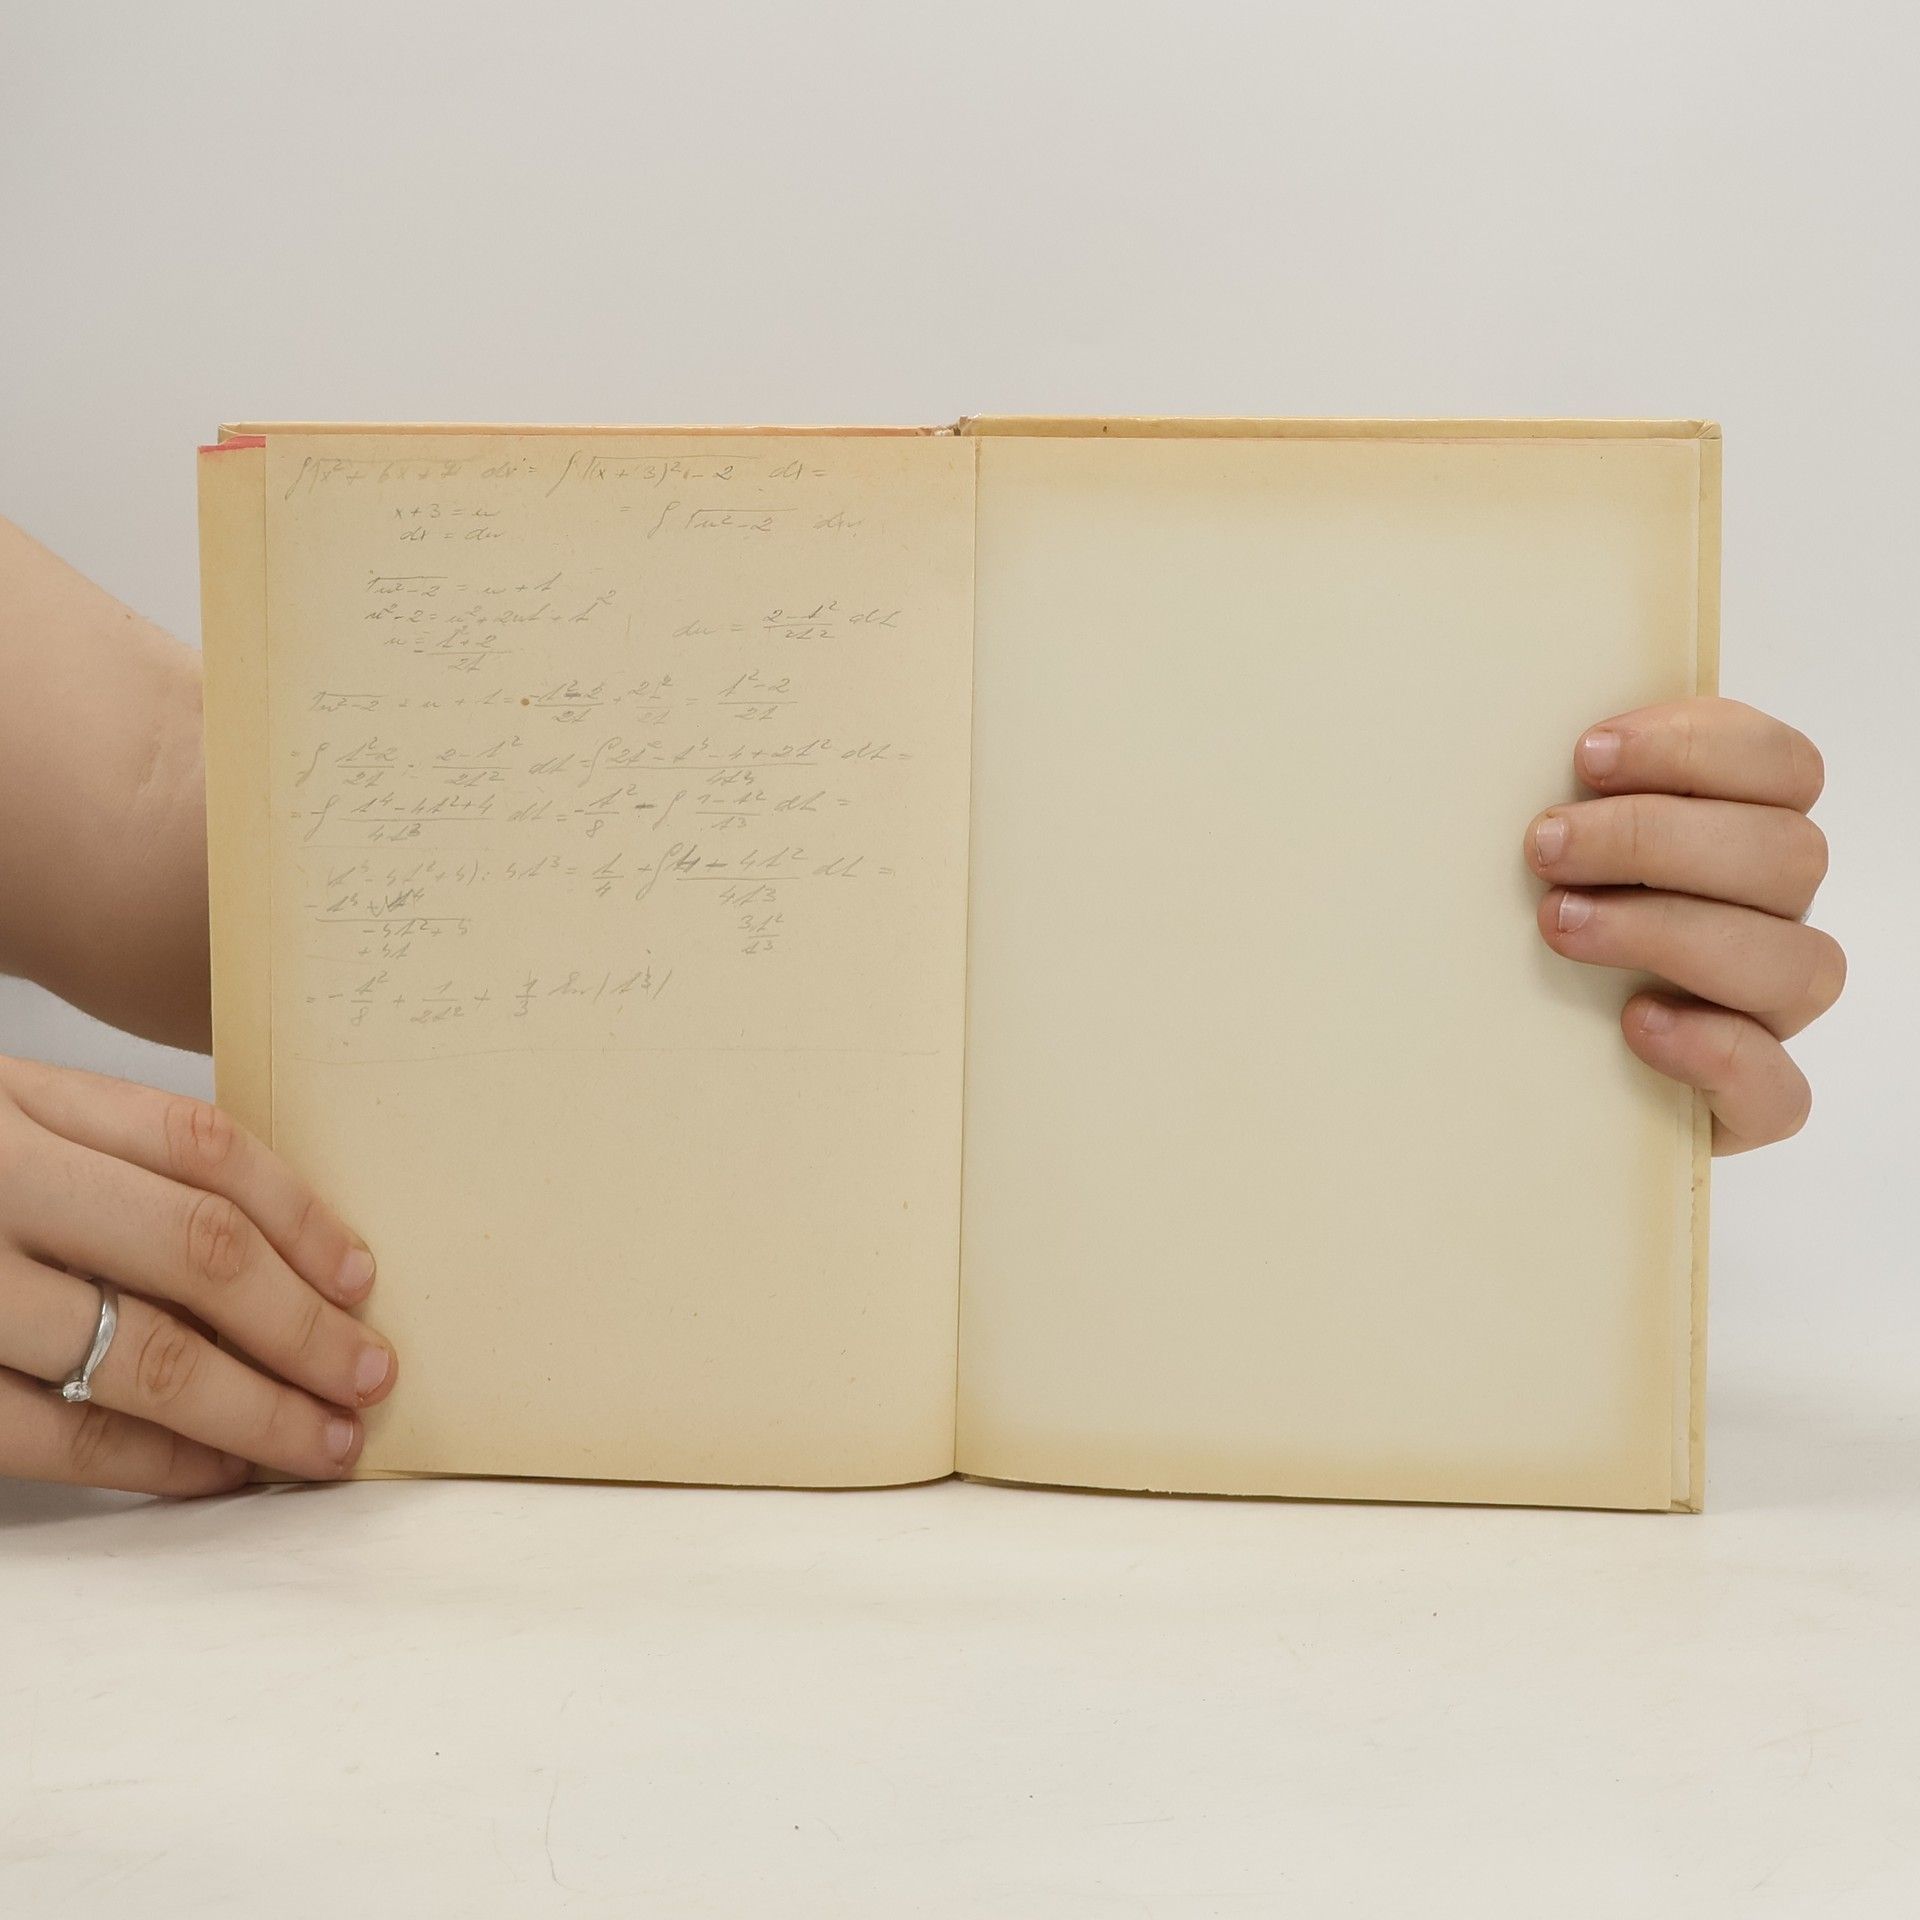 ∫√(x²+6x+7) dx = ∫√((x+3)²-2) dx =
x+3 = u
dx = du
= ∫√(u²-2) du
√(u²-2) = u+t
u²-2 = u²+2ut+t²
u = t²+2/2t
du = 2-t²/2t² dt
√(u²-2) = u+t = -t²-2/2t + 2t²/2t = t²-2/2t
= ∫ t²-2/2t · 2-t²/2t² dt = ∫ 2t²-t⁴-4+2t²/4t³ dt =
= ∫ t⁴-4t²+4/4t³ dt = -t²/8 - ∫ 1-t²/t³ dt =
(t⁴-4t²+4) : 4t³ = t/4 + ∫ 4-4t²/4t³ dt =
-4t²+4
+4t
3t²/t³
= -t²/8 + 1/2t² + 1/3 ln|t³|